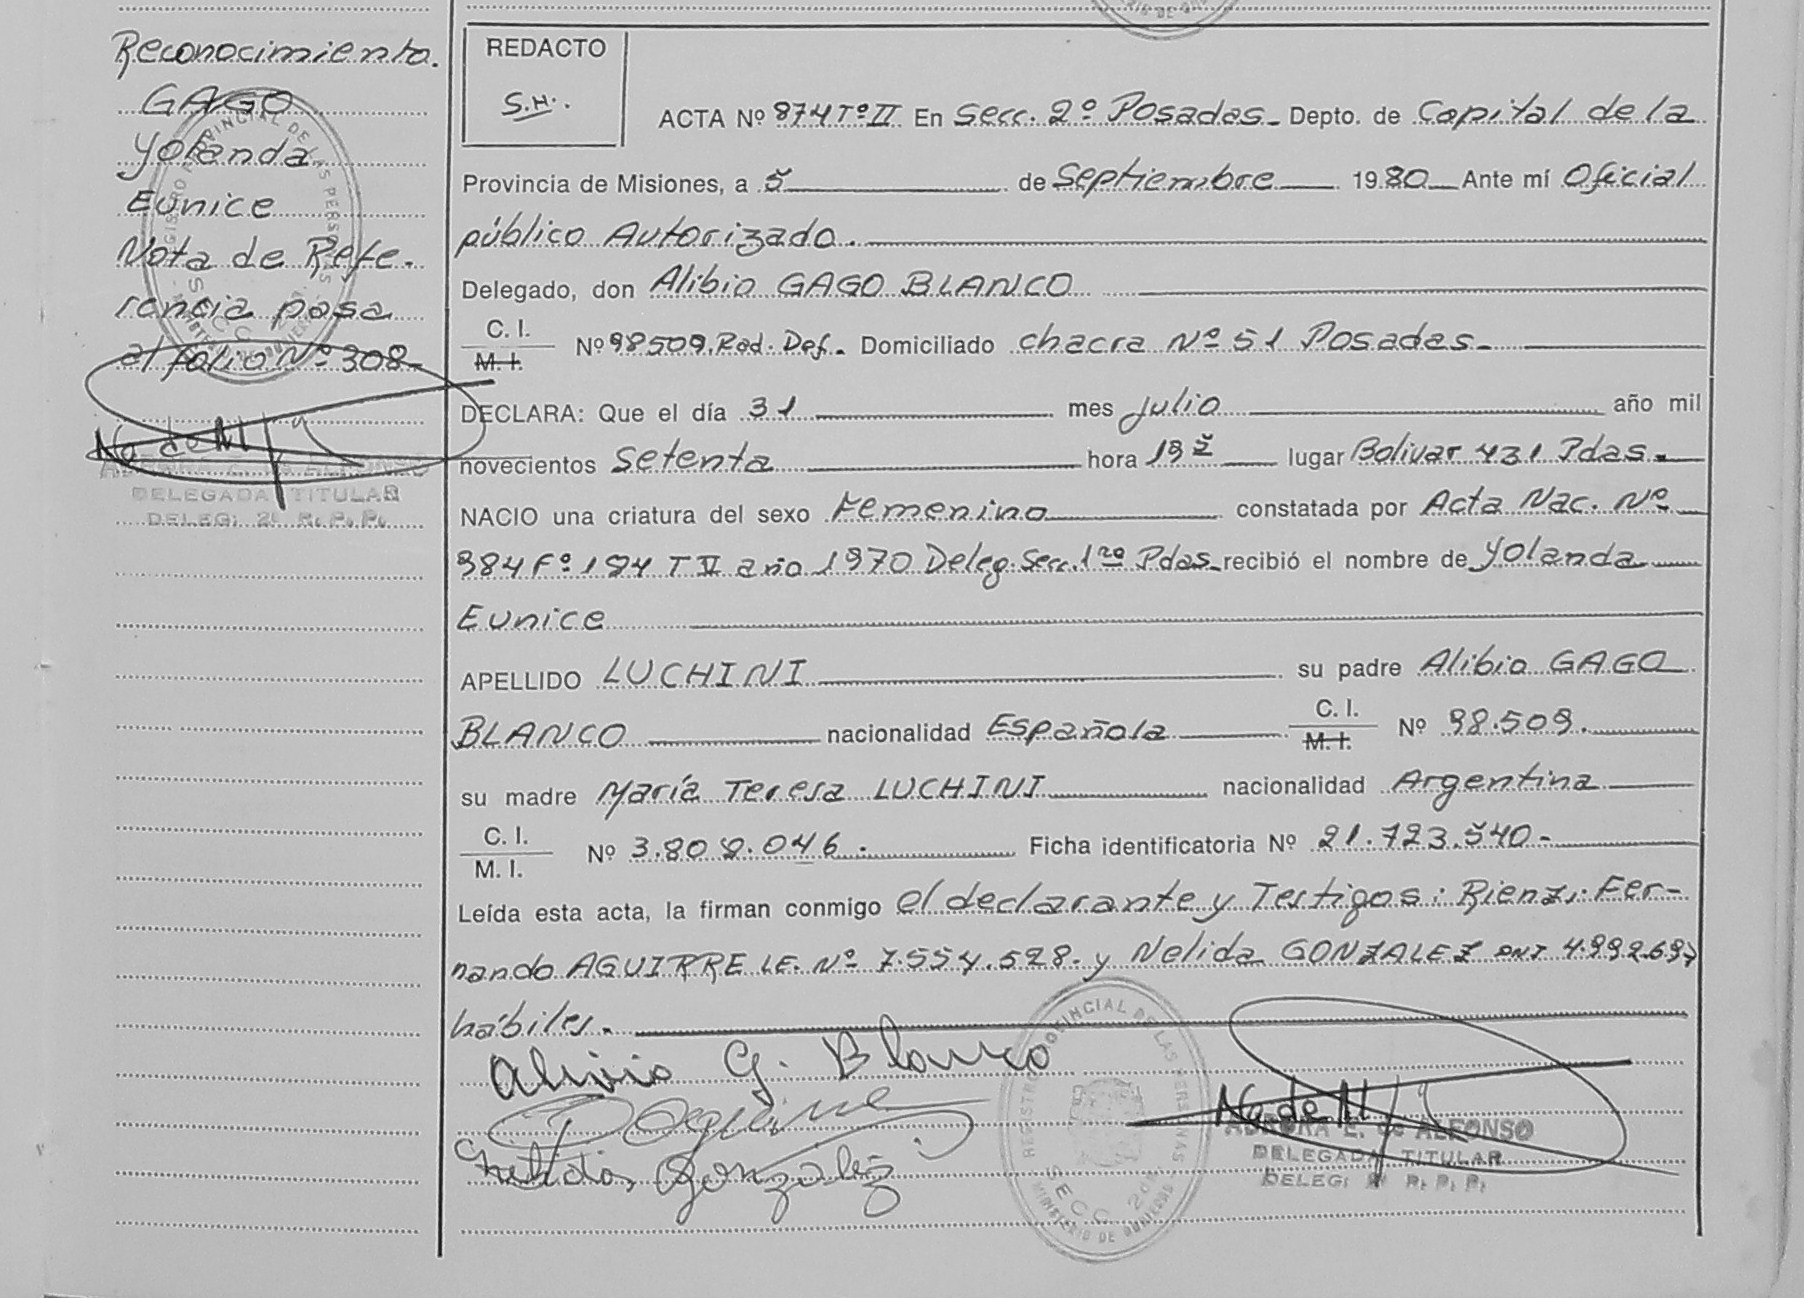 Reconocimiento.
GAGO
Yolanda
Eunice
Nota de Refe-
rencia pasa
al folio Nº 308-
DELEGADA TITULAR
DELEG: 2ª R. P. P.
REDACTO
S.H..
ACTA Nº 874 Tº II En Secc. 2º Posadas. Depto. de Capital de la
Provincia de Misiones, a 5 de Septiembre 1980 Ante mí Oficial
público Autorizado.
Delegado, don Alibio GAGO BLANCO
C. I.
M. I.
Nº 98509. Rad. Def. Domiciliado chacra Nº 51 Posadas.
DECLARA: Que el día 31 mes Julio año mil
novecientos Setenta hora lugar Bolivar 431 Pdas.
NACIO una criatura del sexo Femenino constatada por Acta Nac. Nº
984 Fº 194 T V año 1970 Deleg. Secc. 1ra Pdas. recibió el nombre de Yolanda
Eunice
APELLIDO LUCHINI su padre Alibio GAGO
BLANCO nacionalidad Española C. I. M. I. Nº 98.509.
su madre María Teresa LUCHINI nacionalidad Argentina
C. I.
M. I.
Nº 3.808.046. Ficha identificatoria Nº 21.723.540-
Leída esta acta, la firman conmigo el declarante y Testigos: Rienzi Fer-
nando AGUIRRE LE. Nº 7.554.528. y Nelida GONZALEZ DNI 4.992.697
hábiles.
Alivio G. Blanco
Nelida Gonzalez
AURORA E. de ALFONSO
DELEGADA TITULAR
DELEG: 2ª R. P. P.
REGISTRO PROVINCIAL DE LAS PERSONAS
SECC. 2da.
MINISTERIO DE GOBIERNO